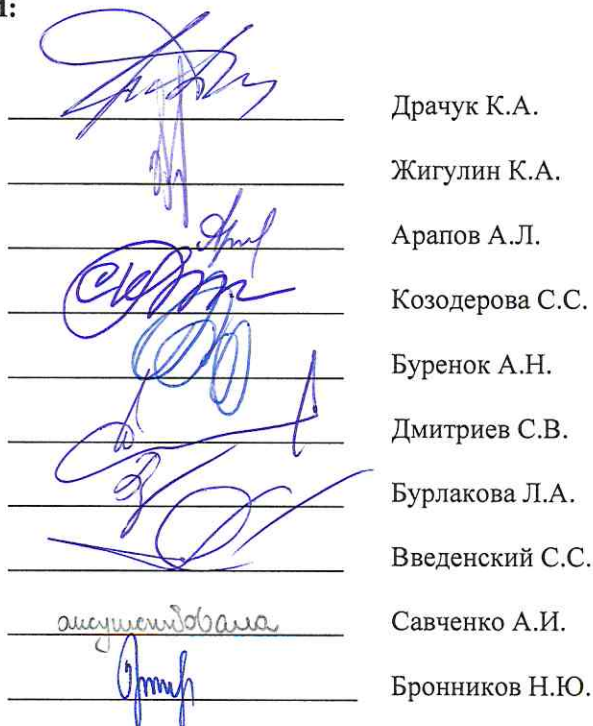 и:
Драчук К.А.
Жигулин К.А.
Арапов А.Л.
Козодерова С.С.
Буренок А.Н.
Дмитриев С.В.
Бурлакова Л.А.
Введенский С.С.
отсутствовала Савченко А.И.
Бронников Н.Ю.